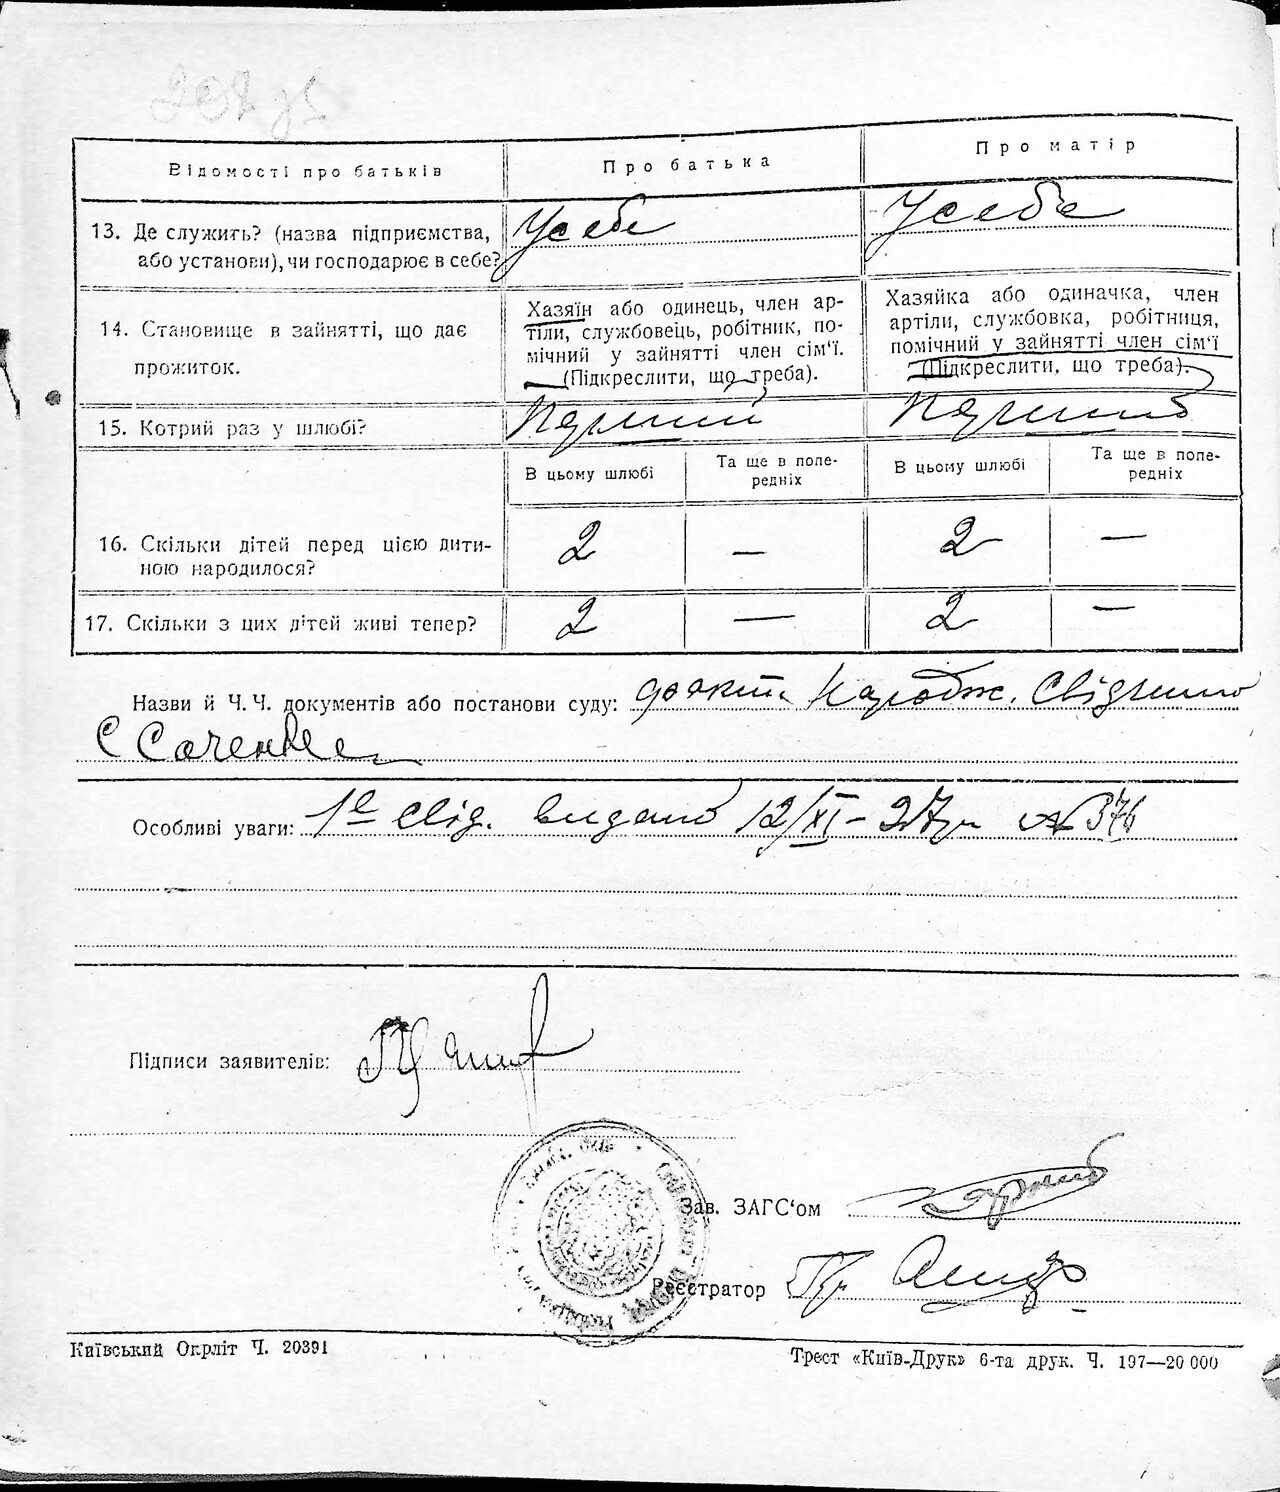 Відомості про батьків
Про батька
Про матір
13. Де служить? (назва підприємства,
або установи), чи господарює в себе?
Усебе
Усебе
14. Становище в зайнятті, що дає
прожиток.
Хазяїн або одинець, член ар-
тіли, службовець, робітник, по-
мічний у зайнятті член сім‘ї.
(Підкреслити, що треба).
Хазяйка або одиначка, член
артіли, службовка, робітниця,
помічний у зайнятті член сім‘ї
(Підкреслити, що треба).
15. Котрий раз у шлюбі?
В цьому шлюбі
Та ще в попе-
редніх
В цьому шлюбі
Та ще в попе-
редніх
16. Скільки дітей перед цією дити-
ною народилося?
2 — 2 —
17. Скільки з цих дітей живі тепер?
2 — 2 —
Назви й Ч. Ч. документів або постанови суду:
Особливі уваги: 1е свід. видано 12/XI – 27р № 376
Підписи заявителів:
Зав. ЗАГС‘ом
Реєстратор
Київський Окрліт Ч. 20391
Трест «Київ-Друк» 6-та друк. Ч. 197—20 000